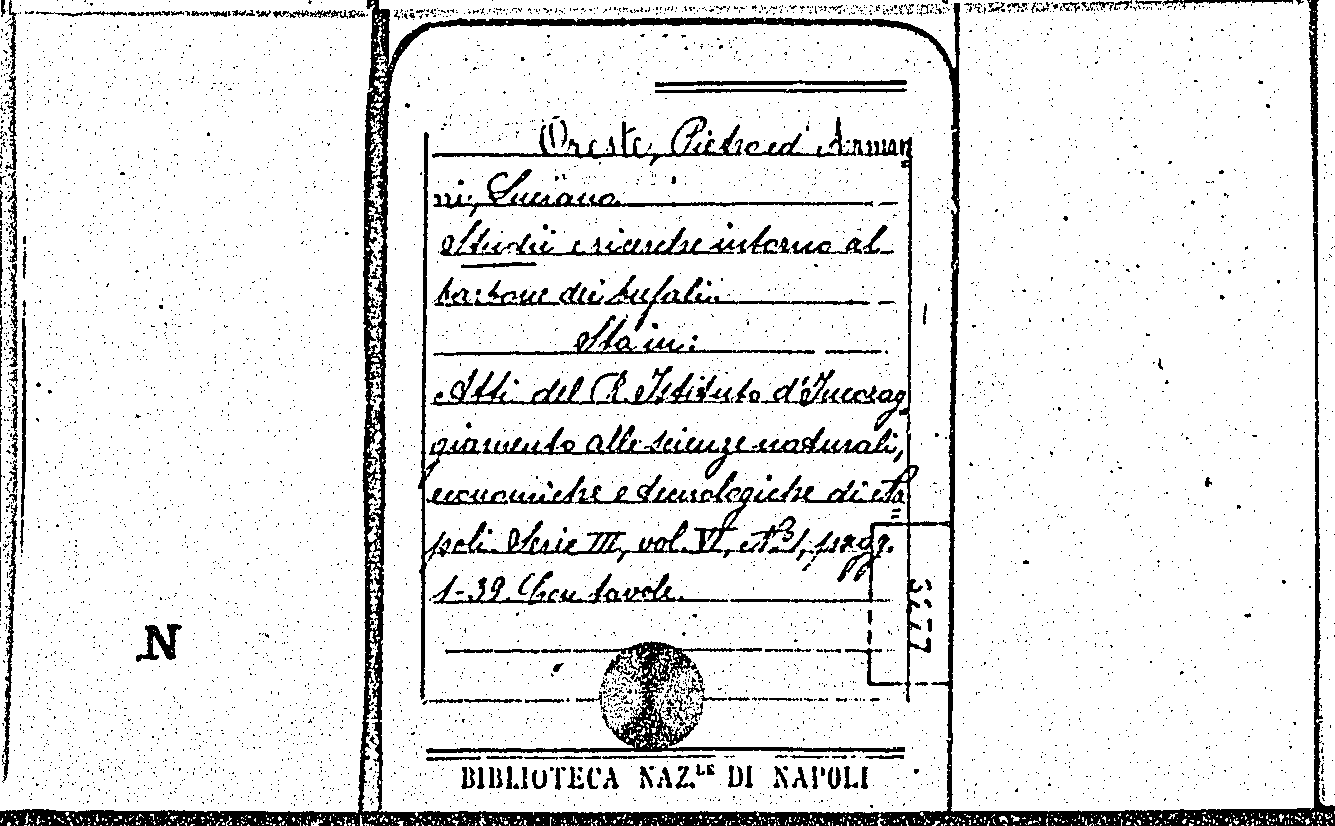 Oreste, Pietro ed Arman
ni, Luciano
Studii e ricerche intorno al
barbone dei bufali.
Sta in:
Atti del R. Istituto d'Incorag
giamento alle scienze naturali,
economiche e tecnologiche di Na
poli. Serie III, vol. VI, N.º 1, pagg.
1-39. Con tavole.
N
BIBLIOTECA NAZ.LE DI NAPOLI